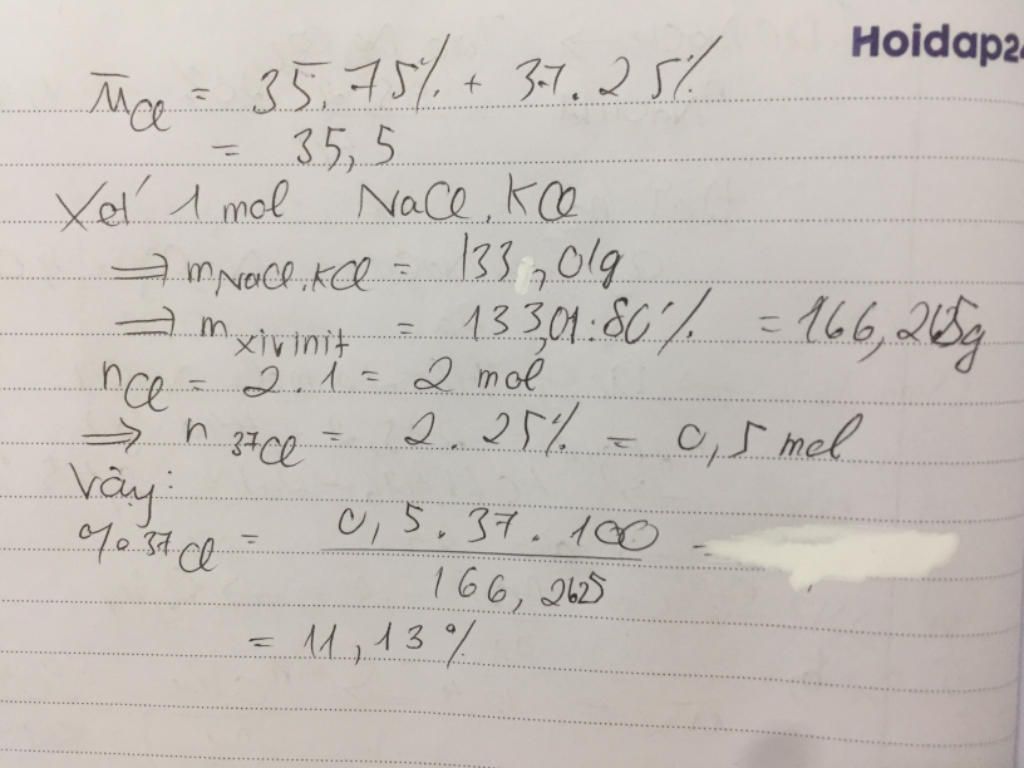 Hoidap24
M̅Cl = 35.75% + 37.25%
= 35,5
Xét 1 mol NaCl.KCl
⇒ mNaCl.KCl = 133,01g
⇒ mxivinit = 133,01:80% = 166,265g
nCl = 2.1 = 2 mol
⇒ n 37Cl = 2.25% = 0,5 mol
Vậy:
% 37Cl = 0,5.37.100 / 166,2625 =
= 11,13%